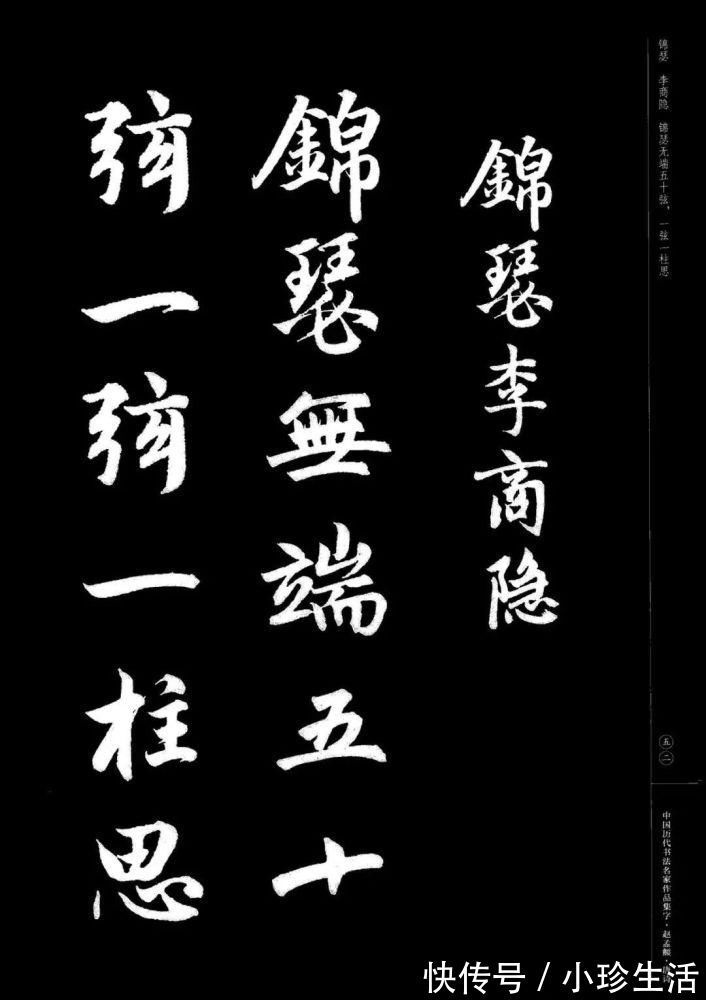 锦瑟 李商隐 锦瑟无端五十弦，一弦一柱思
錦瑟李商隐
錦瑟無端五十
弦一弦一柱思
五二
中国历代书法名家作品集字·赵孟頫·唐诗
快传号/小珍生活